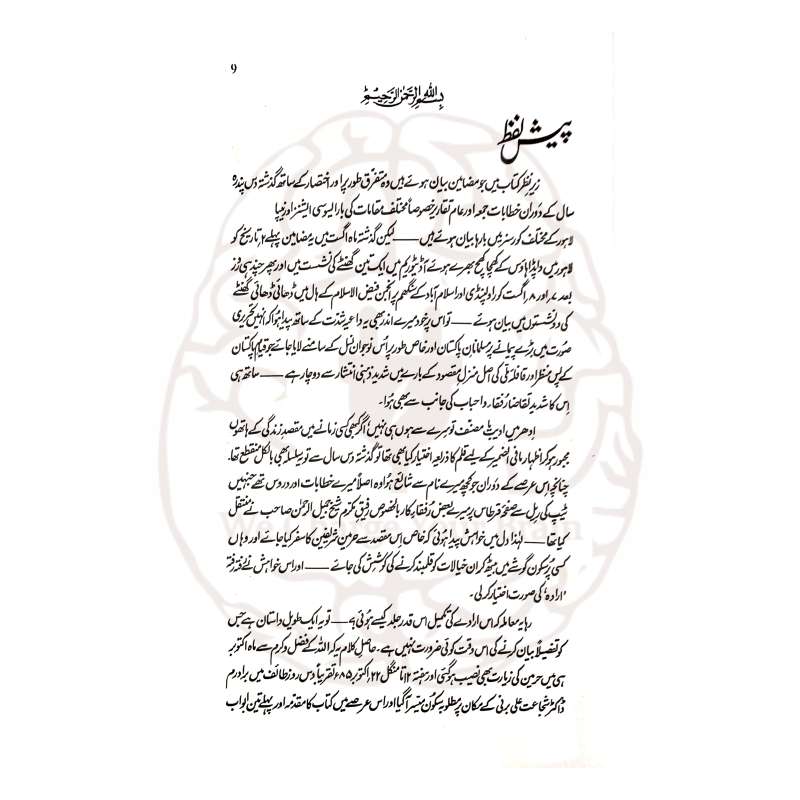 9
بسم اللہ الرحمن الرحیم
پیش لفظ
زیرِ نظر کتاب میں جو مضامین بیان ہوئے ہیں وہ متفرق طور پر اور اختصار کے ساتھ گذشتہ دس پندرہ
سال کے دوران خطاباتِ جمعہ اور عام تقاریر خصوصاً مختلف مقامات کی بار ایسوسی ایشنز اور نیپا
لاہور کے مختلف کورسز میں بارہا بیان ہوئے ہیں ——— لیکن گذشتہ ماہ اگست میں یہ مضامین پہلے ۲ تاریخ کو
لاہور میں واپڈا ہاؤس کے کھچا کھچ بھرے ہوئے آڈیٹوریم میں ایک تین گھنٹے کی نشست میں اور پھر چند ہی روز
بعد ۷ اور ۸ اگست کو راولپنڈی اور اسلام آباد کے سنگھم پر انجمن فیض الاسلام کے ہال میں ڈھائی ڈھائی گھنٹے
کی دو نشستوں میں بیان ہوئے ——— تو اس پر خود میرے اندر بھی یہ داعیہ شدت کے ساتھ پیدا ہوا کہ انہیں تحریری
صورت میں بڑے پیمانے پر مسلمانانِ پاکستان اور خاص طور پر اُس نوجوان نسل کے سامنے لایا جائے جو قیامِ پاکستان
کے پس منظر اور قافلۂ ملی کی اصل منزلِ مقصود کے بارے میں شدید ذہنی انتشار سے دوچار ہے ——— ساتھ ہی
اِس کا شدید تقاضا رفقاء و احباب کی جانب سے بھی ہُوا۔
ادھر میں ادیب یا مصنف تو سرے سے ہوں ہی نہیں اگر کبھی کسی زمانے میں مقصدِ زندگی کے ہاتھوں
مجبور ہو کر اظہارِ مافی الضمیر کے لیے قلم کا ذریعہ اختیار کیا بھی تھا تو گذشتہ دس سال سے تو یہ سلسلہ بھی بالکل منقطع تھا۔
چنانچہ اِس عرصے کے دوران جو کچھ میرے نام سے شائع ہُوا وہ اصلاً میرے خطابات اور دروس تھے جنہیں
ٹیپ کی ریل سے صفحۂ قرطاس پر میرے بعض رفقاءِ کار بالخصوص رفیقِ مکرم شیخ جمیل الرحمٰن صاحب نے منتقل
کیا تھا ——— لہٰذا دل میں خواہش پیدا ہوئی کہ خاص اِس مقصد سے حرمین شریفین کا سفر کیا جائے اور وہاں
کسی پُرسکون گوشے میں بیٹھ کر ان خیالات کو قلمبند کرنے کی کوشش کی جائے ——— اور اس خواہش نے رفتہ رفتہ
'ارادہ' کی صورت اختیار کر لی۔
رہا یہ معاملہ کہ اس ارادے کی تکمیل اس قدر جلد کیسے ہوئی ——— تو یہ ایک طویل داستان ہے جس
کو تفصیلاً بیان کرنے کی اس وقت کوئی ضرورت نہیں ہے۔ حاصلِ کلام یہ کہ اللہ کے فضل و کرم سے ماہِ اکتوبر
ہی میں حرمین کی زیارت بھی نصیب ہو گئی اور ہفتہ ۱۲ تا منگل ۲۲ اکتوبر ۸۵ء تقریباً دس روز طائف میں برادرم
ڈاکٹر شجاعت علی برنی کے مکان پر مطلوبہ سکون میسر آ گیا اور اس عرصے میں کتاب کا مقدمہ اور پہلے تین ابواب